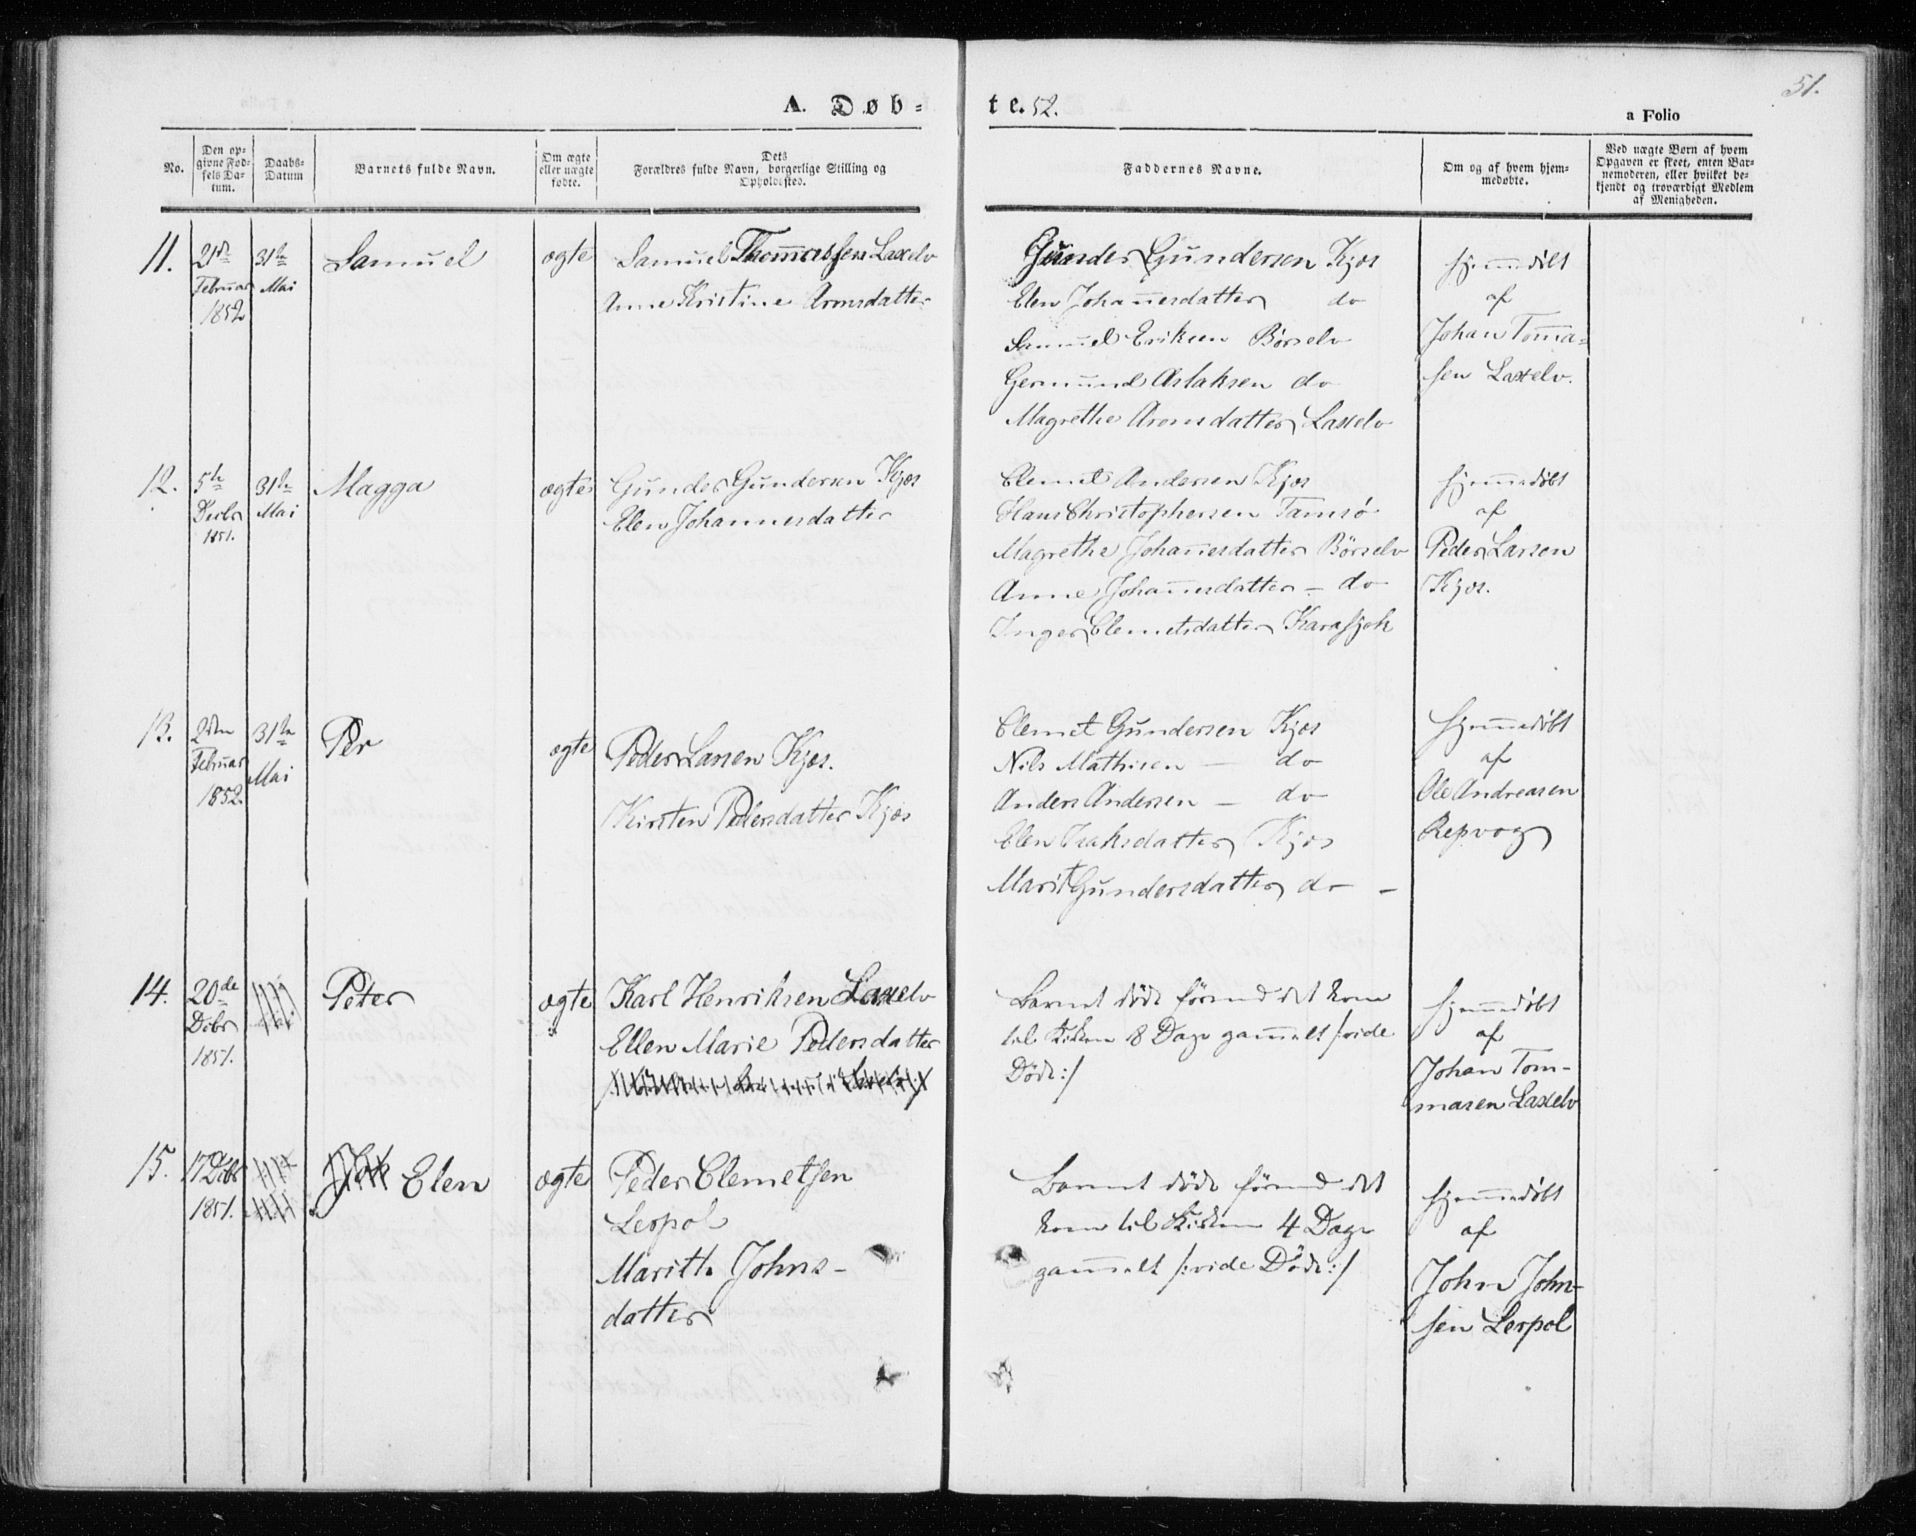 51.
A. Døb-
te. 52.
a Folio
No.
Den op-
givne Fød-
sels Da-
tum.
Daabs-
Datum
Barnets fulde Navn.
Om ægte
eller uægte
fødte.
Dets
Forældres fulde Navn, borgerlige Stilling og
Opholdssted.
Faddernes Navne.
Om og af hvem hjem-
medøbte.
Ved uægte Børn af hvem
Opgaven er skeet, enten Bar-
nemoderen, eller hvilket be-
kjendt og troværdigt Medlem
af Menigheden.
11.
2den
Februar
1852
31te
Mai
Samuel
ægte
Samuel Thomassen Laxelv
Anne Kristine Aronsdatter
Gunder Gundersen Kjæs
Elen Johannesdatter do
Samuel Eriksen Børselv
Germund Aslaksen do
Magrethe Aronsdatter Laxelv
hjemmedøbt
af
Johan Toma-
sen Laxelv.
12.
5te
Decbr
1851.
31te
Mai
Magga
ægte
Gunder Gundersen Kjæs
Elen Johannesdatter
Clemet Andersen Kjæs
Hans Christophersen Tamsø
Magrethe Johannesdatter Børselv
Anne Johannesdatter - do
Inger Clemetsdatter Karasjok
hjemmedøbt
af
Peder Larsen
Kjæs.
13.
2den
Februar
1852.
31te
Mai
Per
ægte
Peder Larsen Kjæs.
Kirsten Pedersdatter Kjæs
Clemet Gundersen Kjæs
Nils Mathisen - do
Anders Andersen - do
Elen Isaksdatter Kjæs
Marit Gundersdatter do -
hjemmedøbt
af
Ole Andreasen
Repvog
14.
20de
Dcbr
1851.
Peter
ægte
Karl Henriksen Laxelv
Ellen Marie Pedersdatter
Barnet døde førend det kom
til Kirken 8 Dage gammelt /:vide
Døde:/
hjemmedøbt
af
Johan Tom-
masen Laxelv
15.
17 Dcbr
1851.
Elen
ægte
Peder Clemetsen
Lerpol
Marith Johns-
datter
Barnet døde førend det
kom til Kirken 4 Dage
gammelt /:vide Døde:/
hjemmedøbt
af
John John-
sen Lerpol